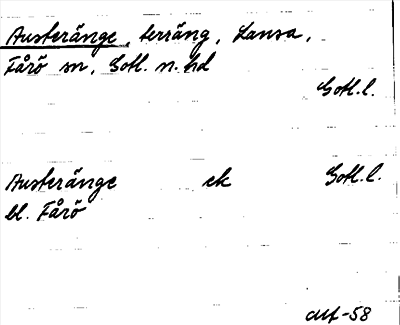 Austeränge, terräng, Lansa,
Fårö sn, Gotl. n. hd
Gotl.l.
Austeränge ek Gotl.l.
bl. Fårö
AUf-58